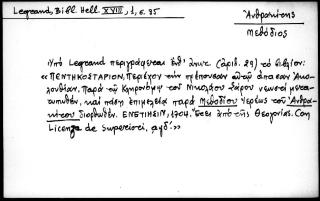 Legrand, Bibl. Hell. XVIII, 1, σ. 35
Ἀνθρακίτης
Μεθόδιος
Ὑπὸ Legrand περιγράφεται ἐνθ' (ἀριθ. 29) τὸ βιβλίον:
«ΠΕΝΤΗΚΟΣΤΑΡΙΟΝ, Περιέχον τὴν πρέπουσαν αὐτῷ ἅπασαν Ἀκο-
λουθίαν. Παρὰ τῶν Κληρονόμων τοῦ Νικολάου Σάρου νεωστὶ μετα-
τυπωθέν, καὶ πάσῃ ἐπιμελείᾳ παρὰ Μεθοδίου Ἱερέως τοῦ Ἀνθρα-
κίτου διορθωθέν. ΕΝΕΤΙΗΣΙΝ, 1704. Ἔτει ἀπὸ τῆς Θεογονίας. Con
Licenza de Superiori, αψδ'.»